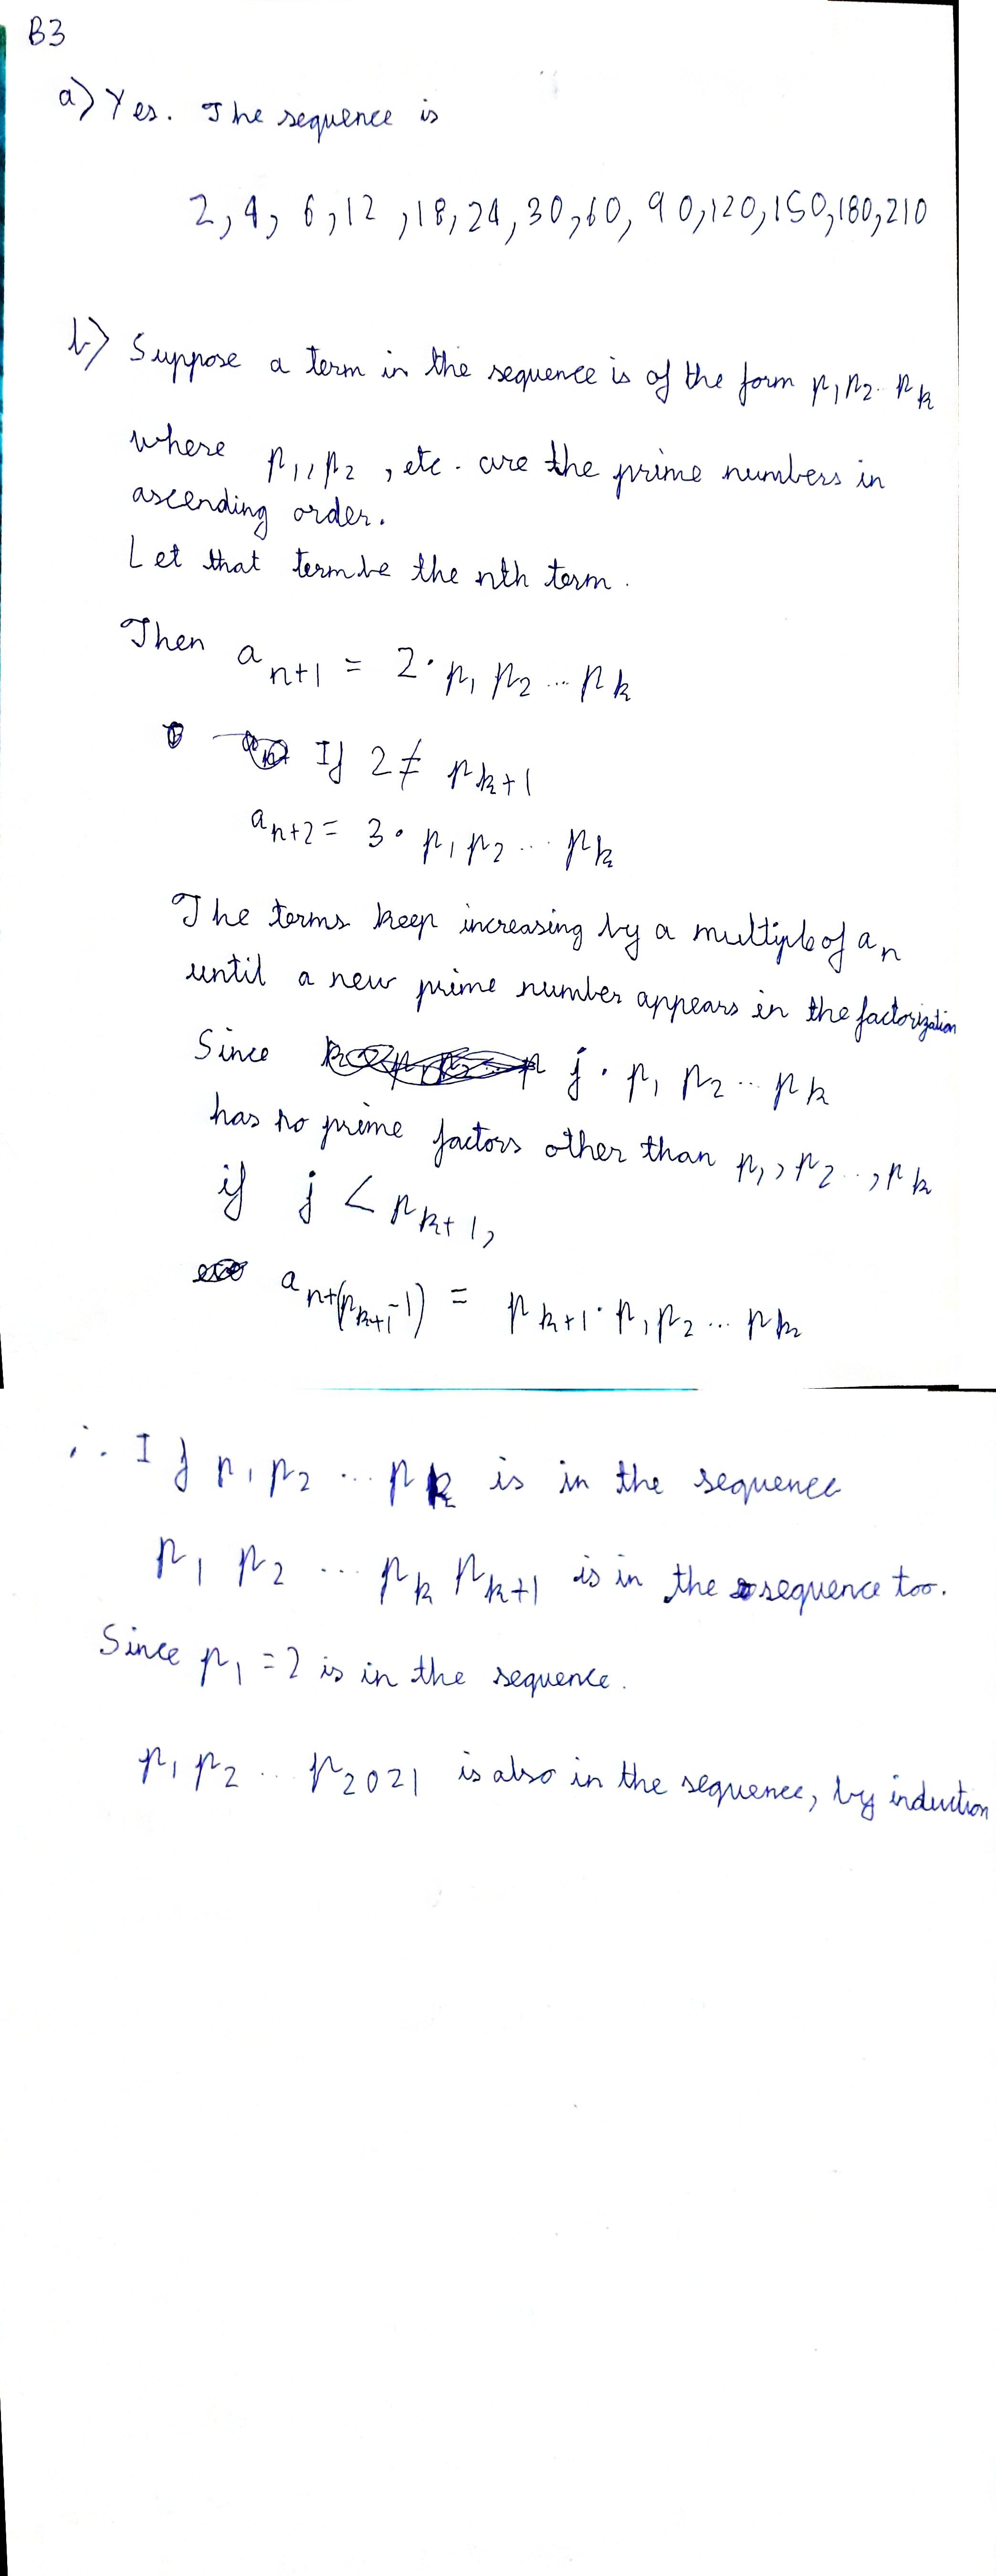 B3
a) Yes. The sequence is
2, 4, 6, 12, 18, 24, 30, 60, 90, 120, 150, 180, 210
b) Suppose a term in the sequence is of the form p₁p₂..pₖ
where p₁, p₂, etc. are the prime numbers in
ascending order.
Let that term be the nth term.
Then aₙ₊₁ = 2·p₁ p₂ ... pₖ
If 2 ≠ pₖ₊₁
aₙ₊₂ = 3·p₁ p₂ ... pₖ
The terms keep increasing by a multiple of aₙ
until a new prime number appears in the factorization
Since j·p₁ p₂ ... pₖ
has no prime factors other than p₁, p₂ .., pₖ
if j < pₖ₊₁,
a_{n+(p_{k+1}-1)} = pₖ₊₁·p₁p₂ ... pₖ
∴ If p₁p₂ ... pₖ is in the sequence
p₁ p₂ ... pₖ pₖ₊₁ is in the sequence too.
Since p₁ = 2 is in the sequence.
p₁ p₂ ... p₂₀₂₁ is also in the sequence, by induction